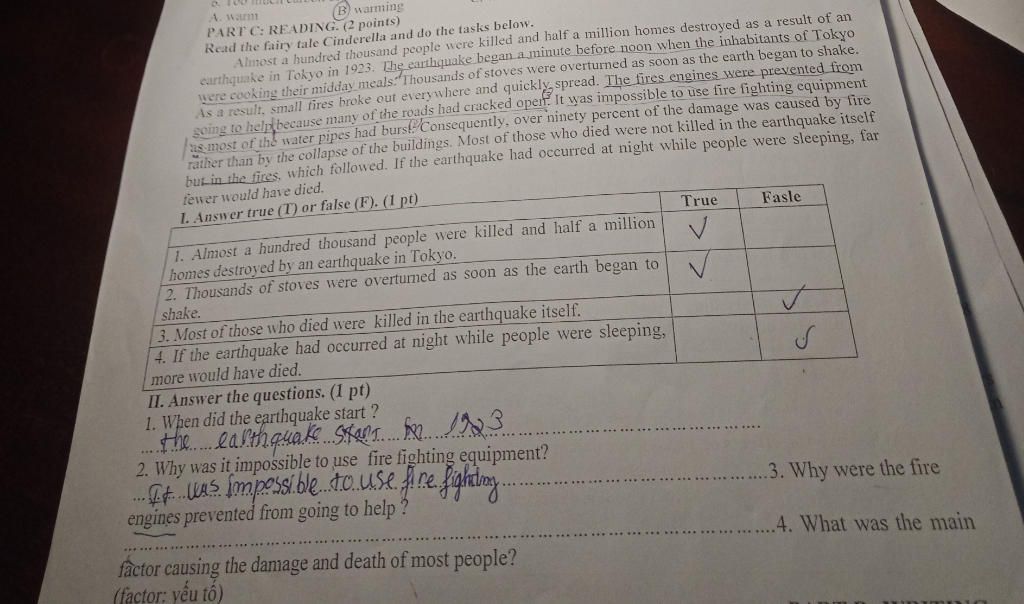 A. warm
B warming
PART C: READING. (2 points)
Read the fairy tale Cinderella and do the tasks below.
Almost a hundred thousand people were killed and half a million homes destroyed as a result of an
earthquake in Tokyo in 1923. The earthquake began a minute before noon when the inhabitants of Tokyo
were cooking their midday meals. Thousands of stoves were overturned as soon as the earth began to shake.
As a result, small fires broke out everywhere and quickly spread. The fires engines were prevented from
going to help because many of the roads had cracked open. It was impossible to use fire fighting equipment
as most of the water pipes had burst. Consequently, over ninety percent of the damage was caused by fire
rather than by the collapse of the buildings. Most of those who died were not killed in the earthquake itself
but in the fires, which followed. If the earthquake had occurred at night while people were sleeping, far
fewer would have died.
I. Answer true (T) or false (F). (1 pt)
True
Fasle
1. Almost a hundred thousand people were killed and half a million
homes destroyed by an earthquake in Tokyo.
2. Thousands of stoves were overturned as soon as the earth began to
shake.
3. Most of those who died were killed in the earthquake itself.
4. If the earthquake had occurred at night while people were sleeping,
more would have died.
II. Answer the questions. (1 pt)
1. When did the earthquake start ?
the earthquake start in 1923
2. Why was it impossible to use fire fighting equipment?
It was impossible to use fire fighting ........3. Why were the fire
engines prevented from going to help ?
........4. What was the main
factor causing the damage and death of most people?
(factor: yếu tố)